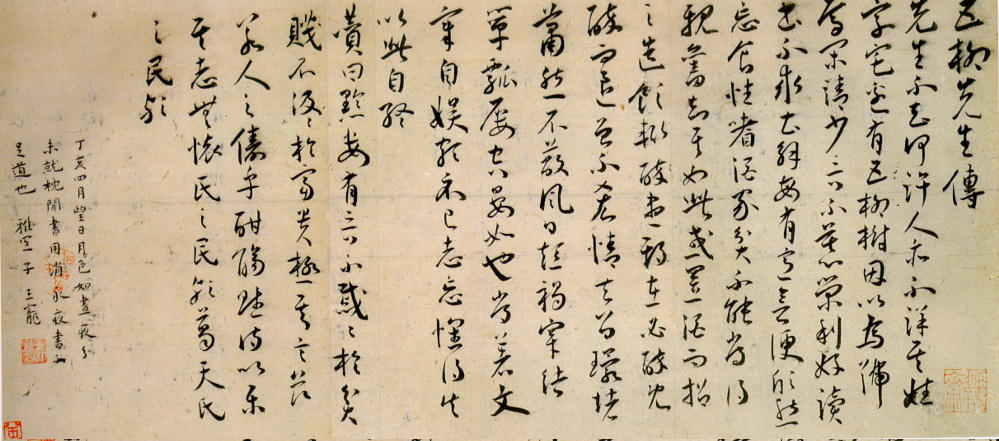 五柳先生傳
先生不知何許人亦不詳其姓
字宅邊有五柳樹因以為號
焉閑靖少言不慕榮利好讀
書不求甚解每有意會便欣然
忘食性嗜酒家貧不能常得
親舊知其如此或置酒而招
之造飲輒盡期在必醉既
醉而退曾不吝情去留環堵
蕭然不蔽風日短褐穿結
簞瓢屢空晏如也常著文
章自娛頗示己志忘懷得失
以此自終
贊曰黔婁有言不慼〻於貧
賤不汲〻於富貴極其言茲
若人之儔乎酣觴賦詩以樂
其志無懷氏之民歟葛天氏
之民歟
丁亥四月望日月色如晝夜分
未就枕閒書用消永夜書不
足道也 雅宜子王寵